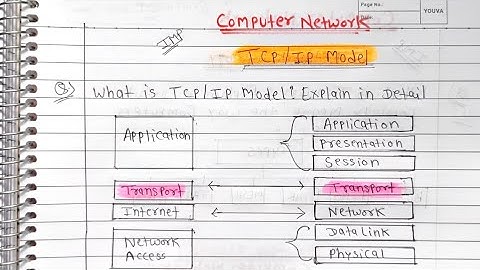 Page No.:
Date:
YOUVA
Computer Network
IMP
TCP/IP Model
Q) What is TCP/IP Model? Explain in Detail
Application
Application
Presentation
Session
Transport
Transport
Internet
Network
Network Access
Data Link
Physical